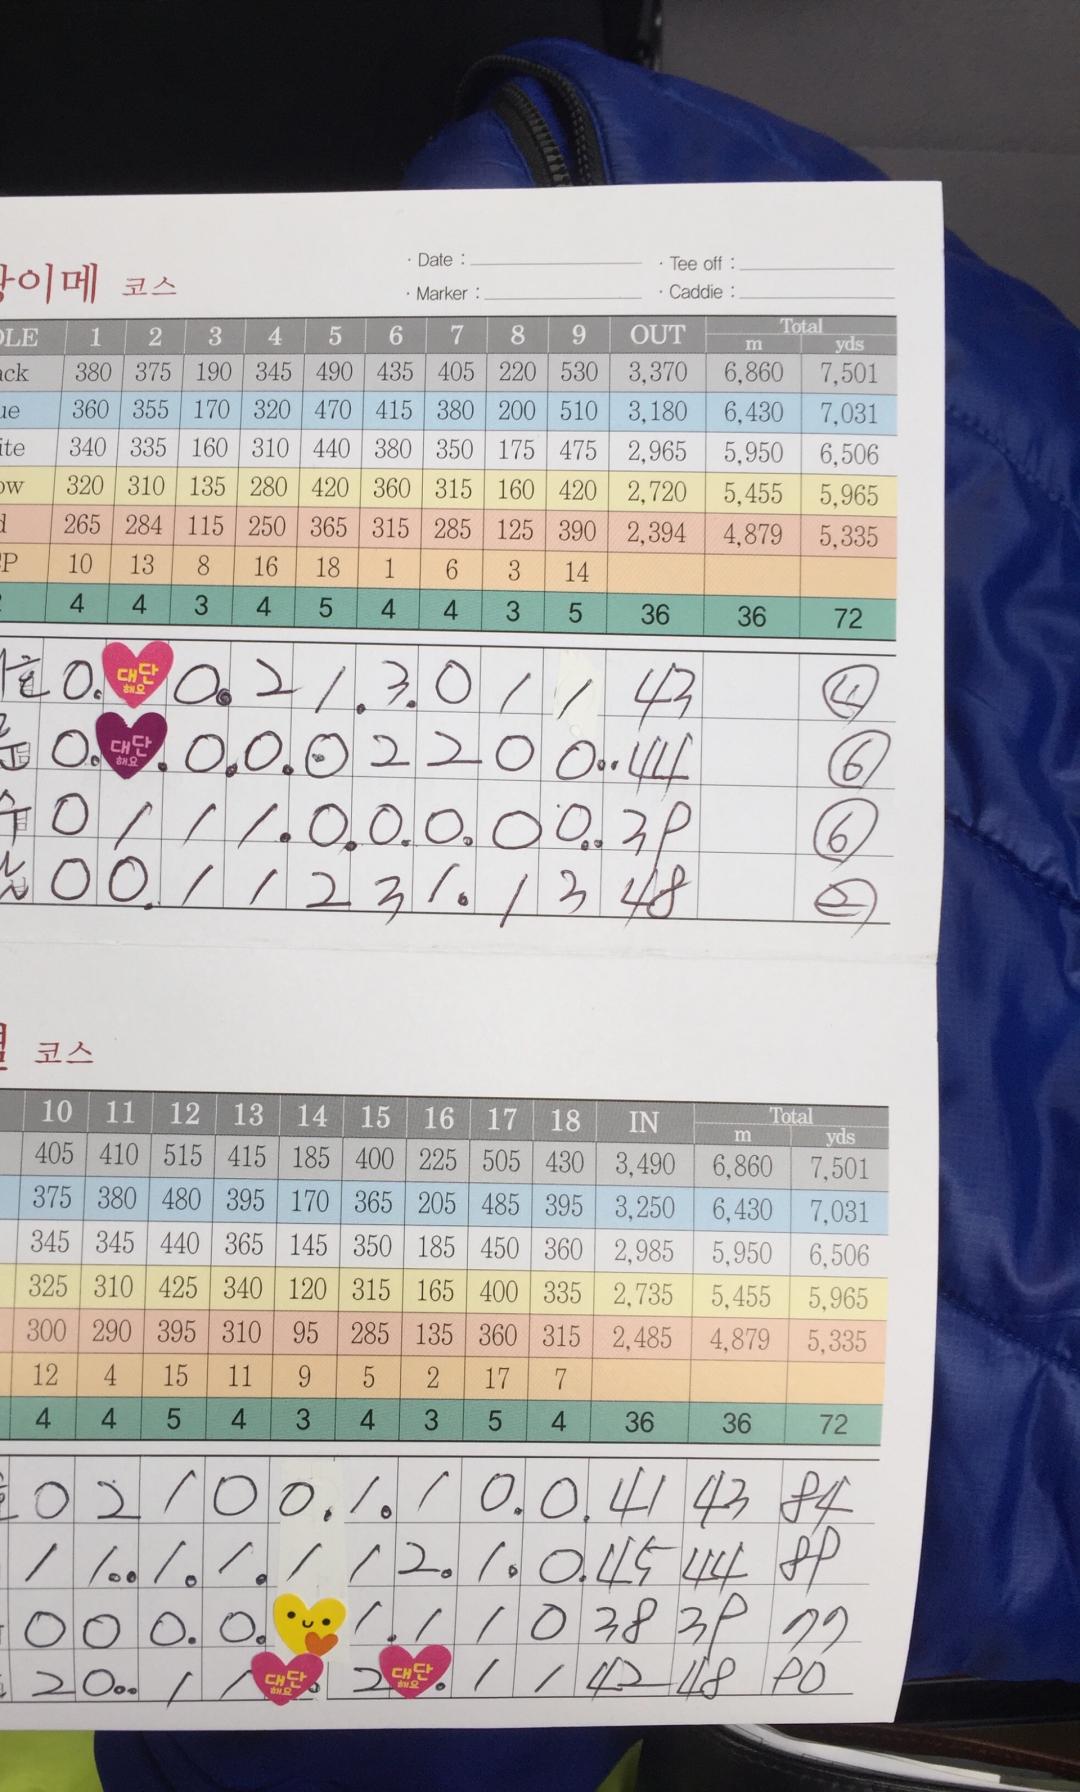 이메 코스
· Date :
· Tee off :
· Marker :
· Caddie :
LE 1 2 3 4 5 6 7 8 9 OUT Total m yds
ck 380 375 190 345 490 435 405 220 530 3,370 6,860 7,501
ue 360 355 170 320 470 415 380 200 510 3,180 6,430 7,031
ite 340 335 160 310 440 380 350 175 475 2,965 5,950 6,506
ow 320 310 135 280 420 360 315 160 420 2,720 5,455 5,965
d 265 284 115 250 365 315 285 125 390 2,394 4,879 5,335
P 10 13 8 16 18 1 6 3 14
4 4 3 4 5 4 4 3 5 36 36 72
0. 대단해요 0. 2 1. 3. 0 1 1 43 4
0. 대단해요. 0. 0. 0 2 2 0 0.. 44 6
0 1 1 1. 0. 0. 0. 0 0.. 39 6
0 0. 1 1 2 3 1. 1 3 48 2
코스
10 11 12 13 14 15 16 17 18 IN Total m yds
405 410 515 415 185 400 225 505 430 3,490 6,860 7,501
375 380 480 395 170 365 205 485 395 3,250 6,430 7,031
345 345 440 365 145 350 185 450 360 2,985 5,950 6,506
325 310 425 340 120 315 165 400 335 2,735 5,455 5,965
300 290 395 310 95 285 135 360 315 2,485 4,879 5,335
12 4 15 11 9 5 2 17 7
4 4 5 4 3 4 3 5 4 36 36 72
0 2 1 0 0. 1. 1 0. 0. 41 43 84
1 1.. 1. 1. 1 1 2. 1. 0. 45 44 89
0 0 0. 0. 1. 1 1 0 38 39 77
2 0.. 1 1 대단해요. 2 대단해요. 1 1 42 48 90